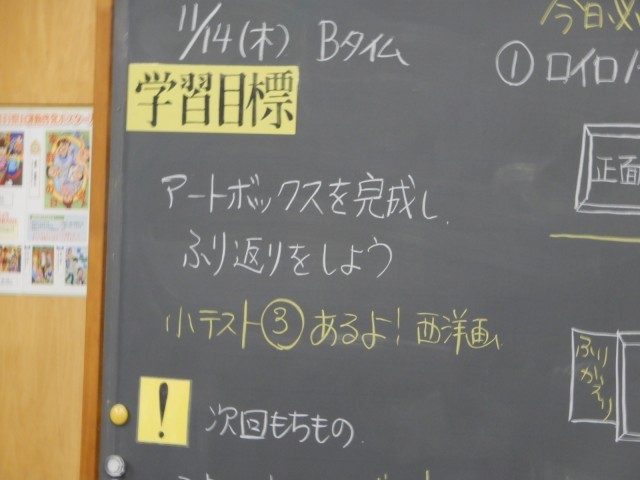 11/14(木) Bタイム
学習目標
アートボックスを完成し、
ふり返りをしよう
小テスト③あるよ! 西洋画
!
次回もちもの
①ロイロ
正面
ふり
かえり